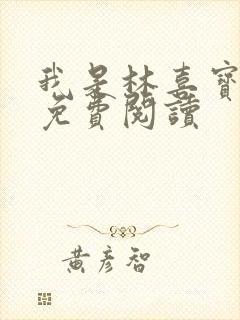 我是林喜寶
免費閱讀
黃彥智